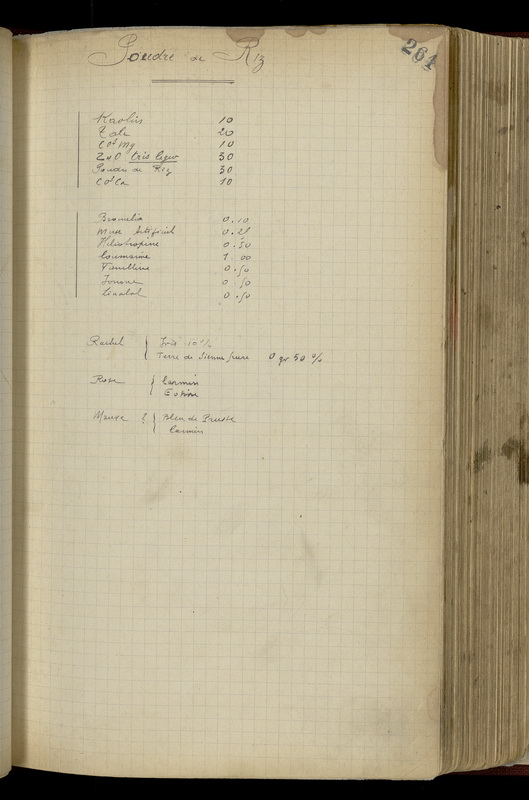 264
Poudre de Riz
Kaolin 10
Talc 20
CO³Mg 10
ZnO très léger 30
Poudre de Riz 30
CO³Ca 10
Bromelia 0.10
Musc Artificiel 0.25
Heliotropine 0.50
Coumarine 1.00
Vanilline 0.50
Ionone 0.50
Linalol 0.50
Rachel { Iris 10 %
Terre de Sienne pure 0 gr 50 %
Rose { Carmin
Eosine
Mauve ? { Bleu de Prusse
Carmin